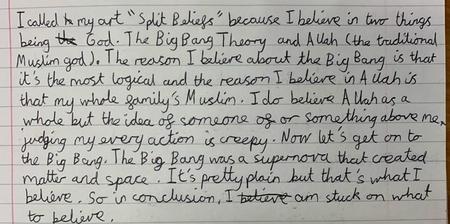 I called my art "Split Beliefs" because I believe in two things
being the God. The Big Bang Theory and Allah (the traditional
Muslim god). The reason I believe about the Big Bang is that
it's the most logical and the reason I believe in Allah is
that my whole family's Muslim. I do believe Allah as a
whole but the idea of someone of or something above me,
judging my every action is creepy. Now let's get on to
the Big Bang. The Big Bang was a supernova that created
matter and space. It's pretty plain but that's what I
believe. So in conclusion, I believe am stuck on what
to believe.